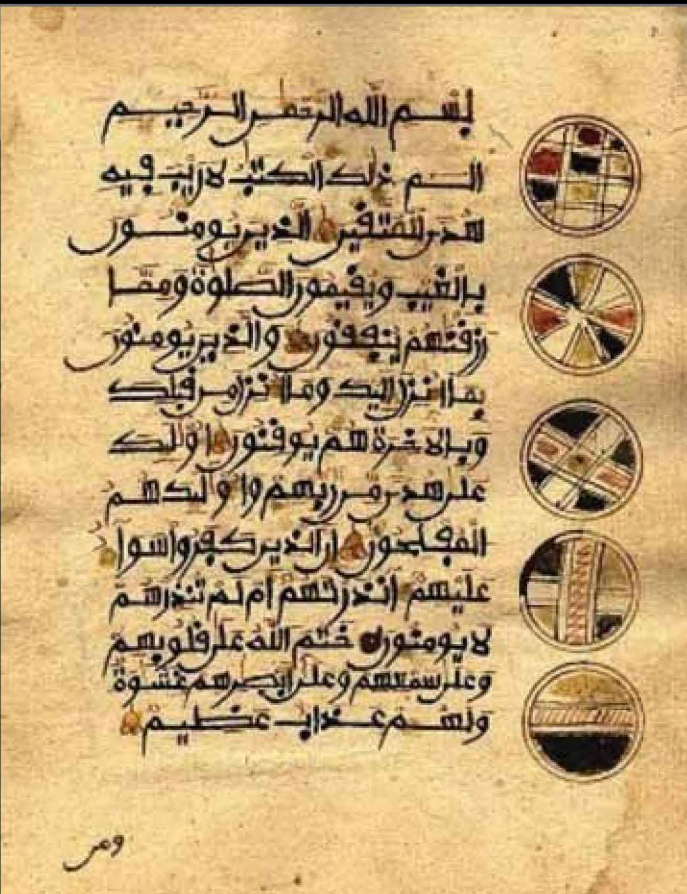 بسم الله الرحمن الرحيم
الم ذلك الكتب لا ريب فيه
هدى للمتقين الذين يومنون
بالغيب ويقيمون الصلوة ومما
رزقنهم ينفقون والذين يومنون
بما انزل اليك وما انزل من قبلك
وبالاخرة هم يوقنون اولئك
على هدى من ربهم واولئك هم
المفلحون ان الذين كفروا سوا
عليهم انذرتهم ام لم تنذرهم
لا يومنون ختم الله على قلوبهم
وعلى سمعهم وعلى ابصرهم غشوة
ولهم عذاب عظيم
ومن